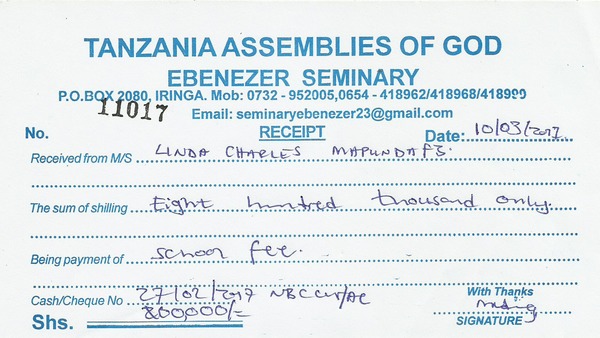 TANZANIA ASSEMBLIES OF GOD
EBENEZER SEMINARY
P.O.BOX 2080, IRINGA. Mob: 0732 - 952005,0654 - 418962/418968/418999
11017
Email: seminaryebenezer23@gmail.com
No. RECEIPT Date: 10/03/2017
Received from M/S LINDA CHARLES MAPUNDA F3.
The sum of shilling Eight hundred thousand only.
Being payment of school fee.
Cash/Cheque No 27/02/2017 NBC With Thanks
Shs. 800,000/= SIGNATURE